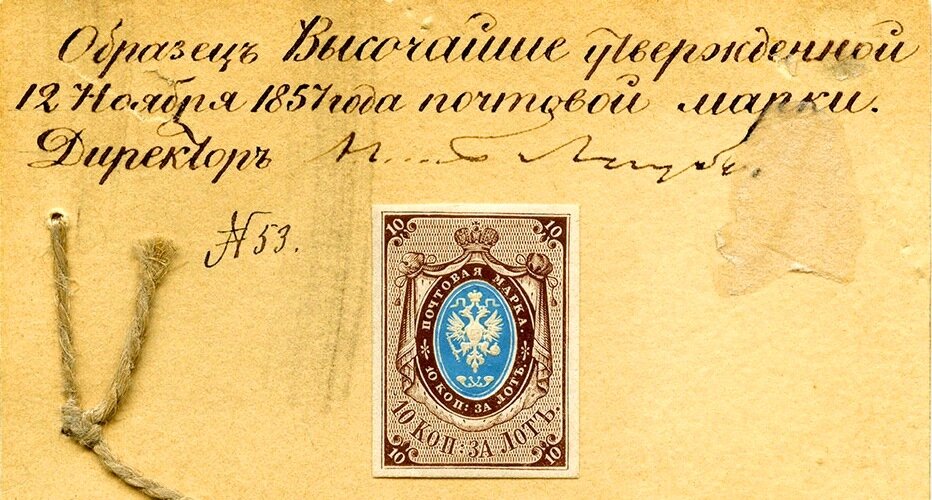 Образецъ Высочайше утвержденной
12 Ноября 1857 года почтовой марки.
Директоръ
№ 53.
10 10
ПОЧТОВАЯ МАРКА.
10 КОП: ЗА ЛОТЪ.
10 КОП: ЗА ЛОТЪ.
10 10